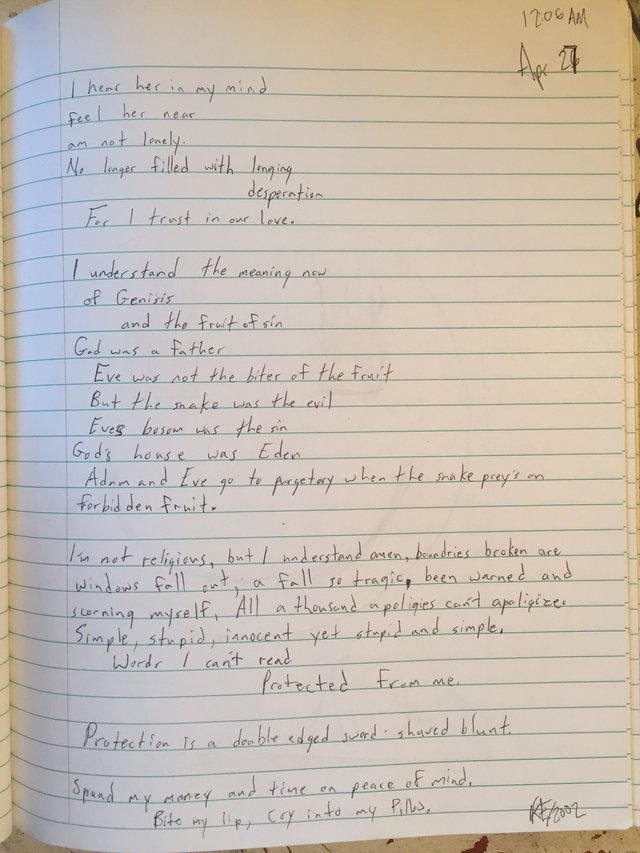 12:06 AM
Apr 27
I hear her in my mind
feel her near
am not lonely.
No longer filled with longing
desperation
For I trust in our love.
I understand the meaning now
of Genisis
and the fruit of sin
God was a father
Eve was not the biter of the fruit
But the snake was the evil
Eves bosom was the sin
God's house was Eden
Adam and Eve go to purgetory when the snake prey's on
forbidden fruit.
I'm not religious, but I understand amen, boundries broken are
windows fall out, a fall so tragic, been warned and
scorning myself, All a thousand apoligies can't apoligize.
Simple, stupid, innocent yet stupid and simple.
Words I can't read
Protected From me.
Protection is a double edged sword. shaved blunt.
Spend my money and time on peace of mind.
Bite my lip, Cry into my Pillow.
KF/2002